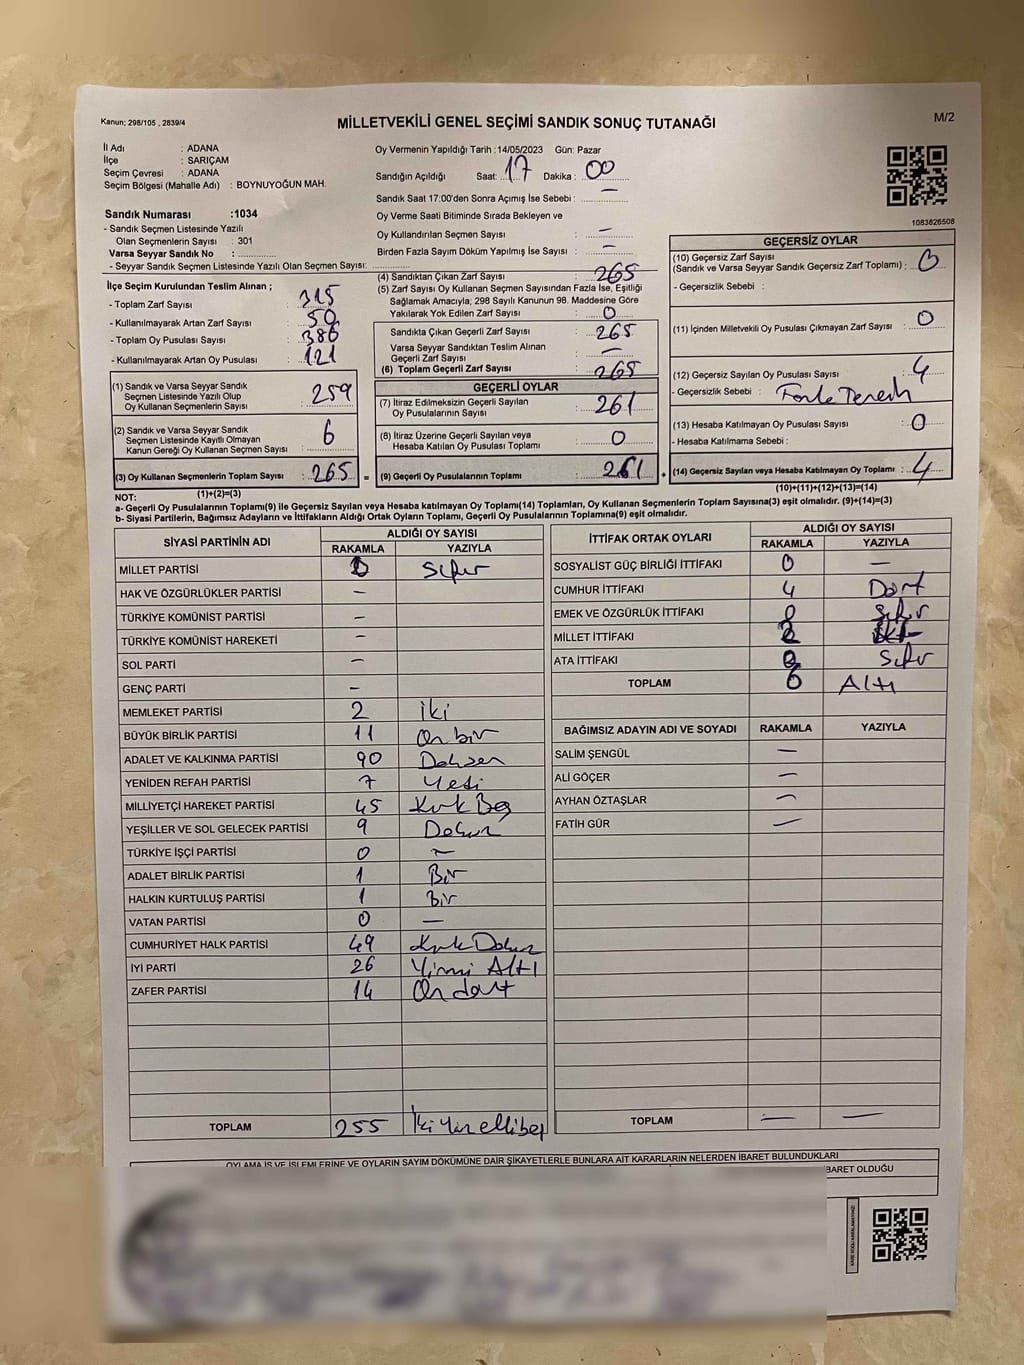 Kanun; 298/105 , 2839/4
MİLLETVEKİLİ GENEL SEÇİMİ SANDIK SONUÇ TUTANAĞI
M/2
İl Adı : ADANA
İlçe : SARIÇAM
Seçim Çevresi : ADANA
Seçim Bölgesi (Mahalle Adı) : BOYNUYOĞUN MAH.
Sandık Numarası :1034
- Sandık Seçmen Listesinde Yazılı
Olan Seçmenlerin Sayısı : 301
Varsa Seyyar Sandık No :
- Seyyar Sandık Seçmen Listesinde Yazılı Olan Seçmen Sayısı:
İlçe Seçim Kurulundan Teslim Alınan ;
- Toplam Zarf Sayısı : 315
- Kullanılmayarak Artan Zarf Sayısı : 50
- Toplam Oy Pusulası Sayısı : 386
- Kullanılmayarak Artan Oy Pusulası : 121
(1) Sandık ve Varsa Seyyar Sandık
Seçmen Listesinde Yazılı Olup
Oy Kullanan Seçmenlerin Sayısı : 259
(2) Sandık ve Varsa Seyyar Sandık
Seçmen Listesinde Kayıtlı Olmayan
Kanun Gereği Oy Kullanan Seçmen Sayısı : 6
(3) Oy Kullanan Seçmenlerin Toplam Sayısı : 265
(1)+(2)=(3)
Oy Vermenin Yapıldığı Tarih :14/05/2023 Gün: Pazar
Sandığın Açıldığı Saat: 17 Dakika : 00
Sandık Saat 17:00'den Sonra Açımış İse Sebebi : —
Oy Verme Saati Bitiminde Sırada Bekleyen ve
Oy Kullandırılan Seçmen Sayısı : —
Birden Fazla Sayım Döküm Yapılmış İse Sayısı : —
(4) Sandıktan Çıkan Zarf Sayısı : 265
(5) Zarf Sayısı Oy Kullanan Seçmen Sayısından Fazla İse, Eşitliği
Sağlamak Amacıyla; 298 Sayılı Kanunun 98. Maddesine Göre
Yakılarak Yok Edilen Zarf Sayısı : 0
Sandıkta Çıkan Geçerli Zarf Sayısı : 265
Varsa Seyyar Sandıktan Teslim Alınan
Geçerli Zarf Sayısı : —
(6) Toplam Geçerli Zarf Sayısı : 265
GEÇERLİ OYLAR
(7) İtiraz Edilmeksizin Geçerli Sayılan
Oy Pusulalarının Sayısı : 261
(8) İtiraz Üzerine Geçerli Sayılan veya
Hesaba Katılan Oy Pusulası Toplamı : 0
= (9) Geçerli Oy Pusulalarının Toplamı : 261 +
1083826508
GEÇERSİZ OYLAR
(10) Geçersiz Zarf Sayısı
(Sandık ve Varsa Seyyar Sandık Geçersiz Zarf Toplamı) : 0
- Geçersizlik Sebebi :
(11) İçinden Milletvekili Oy Pusulası Çıkmayan Zarf Sayısı : 0
(12) Geçersiz Sayılan Oy Pusulası Sayısı : 4
- Geçersizlik Sebebi :
(13) Hesaba Katılmayan Oy Pusulası Sayısı : 0
- Hesaba Katılmama Sebebi :
(14) Geçersiz Sayılan veya Hesaba Katılmayan Oy Toplamı : 4
(10)+(11)+(12)+(13)=(14)
NOT:
a- Geçerli Oy Pusulalarının Toplamı(9) ile Geçersiz Sayılan veya Hesaba katılmayan Oy Toplamı(14) Toplamları, Oy Kullanan Seçmenlerin Toplam Sayısına(3) eşit olmalıdır. (9)+(14)=(3)
b- Siyasi Partilerin, Bağımsız Adayların ve İttifakların Aldığı Ortak Oyların Toplamı, Geçerli Oy Pusulalarının Toplamına(9) eşit olmalıdır.
SİYASİ PARTİNİN ADI ALDIĞI OY SAYISI
RAKAMLA YAZIYLA
MİLLET PARTİSİ 0 Sıfır
HAK VE ÖZGÜRLÜKLER PARTİSİ —
TÜRKİYE KOMÜNİST PARTİSİ —
TÜRKİYE KOMÜNİST HAREKETİ —
SOL PARTİ —
GENÇ PARTİ —
MEMLEKET PARTİSİ 2 İki
BÜYÜK BİRLİK PARTİSİ 11 On bir
ADALET VE KALKINMA PARTİSİ 90 Doksan
YENİDEN REFAH PARTİSİ 7 Yedi
MİLLİYETÇİ HAREKET PARTİSİ 45 Kırk Beş
YEŞİLLER VE SOL GELECEK PARTİSİ 9 Dokuz
TÜRKİYE İŞÇİ PARTİSİ 0 —
ADALET BİRLİK PARTİSİ 1 Bir
HALKIN KURTULUŞ PARTİSİ 1 Bir
VATAN PARTİSİ 0 —
CUMHURİYET HALK PARTİSİ 49 Kırk Dokuz
İYİ PARTİ 26 Yirmi Altı
ZAFER PARTİSİ 14 On dört
TOPLAM 255 İki Yüz ellibeş
İTTİFAK ORTAK OYLARI ALDIĞI OY SAYISI
RAKAMLA YAZIYLA
SOSYALİST GÜÇ BİRLİĞİ İTTİFAKI 0 —
CUMHUR İTTİFAKI 4 Dört
EMEK VE ÖZGÜRLÜK İTTİFAKI 0 Sıfır
MİLLET İTTİFAKI 2 İki
ATA İTTİFAKI 0 Sıfır
TOPLAM 6 Altı
BAĞIMSIZ ADAYIN ADI VE SOYADI RAKAMLA YAZIYLA
SALİM ŞENGÜL —
ALİ GÖÇER —
AYHAN ÖZTAŞLAR —
FATİH GÜR —
TOPLAM — —
OYLAMA İŞ VE İŞLEMLERİNE VE OYLARIN SAYIM DÖKÜMÜNE DAİR ŞİKAYETLERLE BUNLARA AİT KARARLARIN NELERDEN İBARET BULUNDUKLARI
BARET OLDUĞU